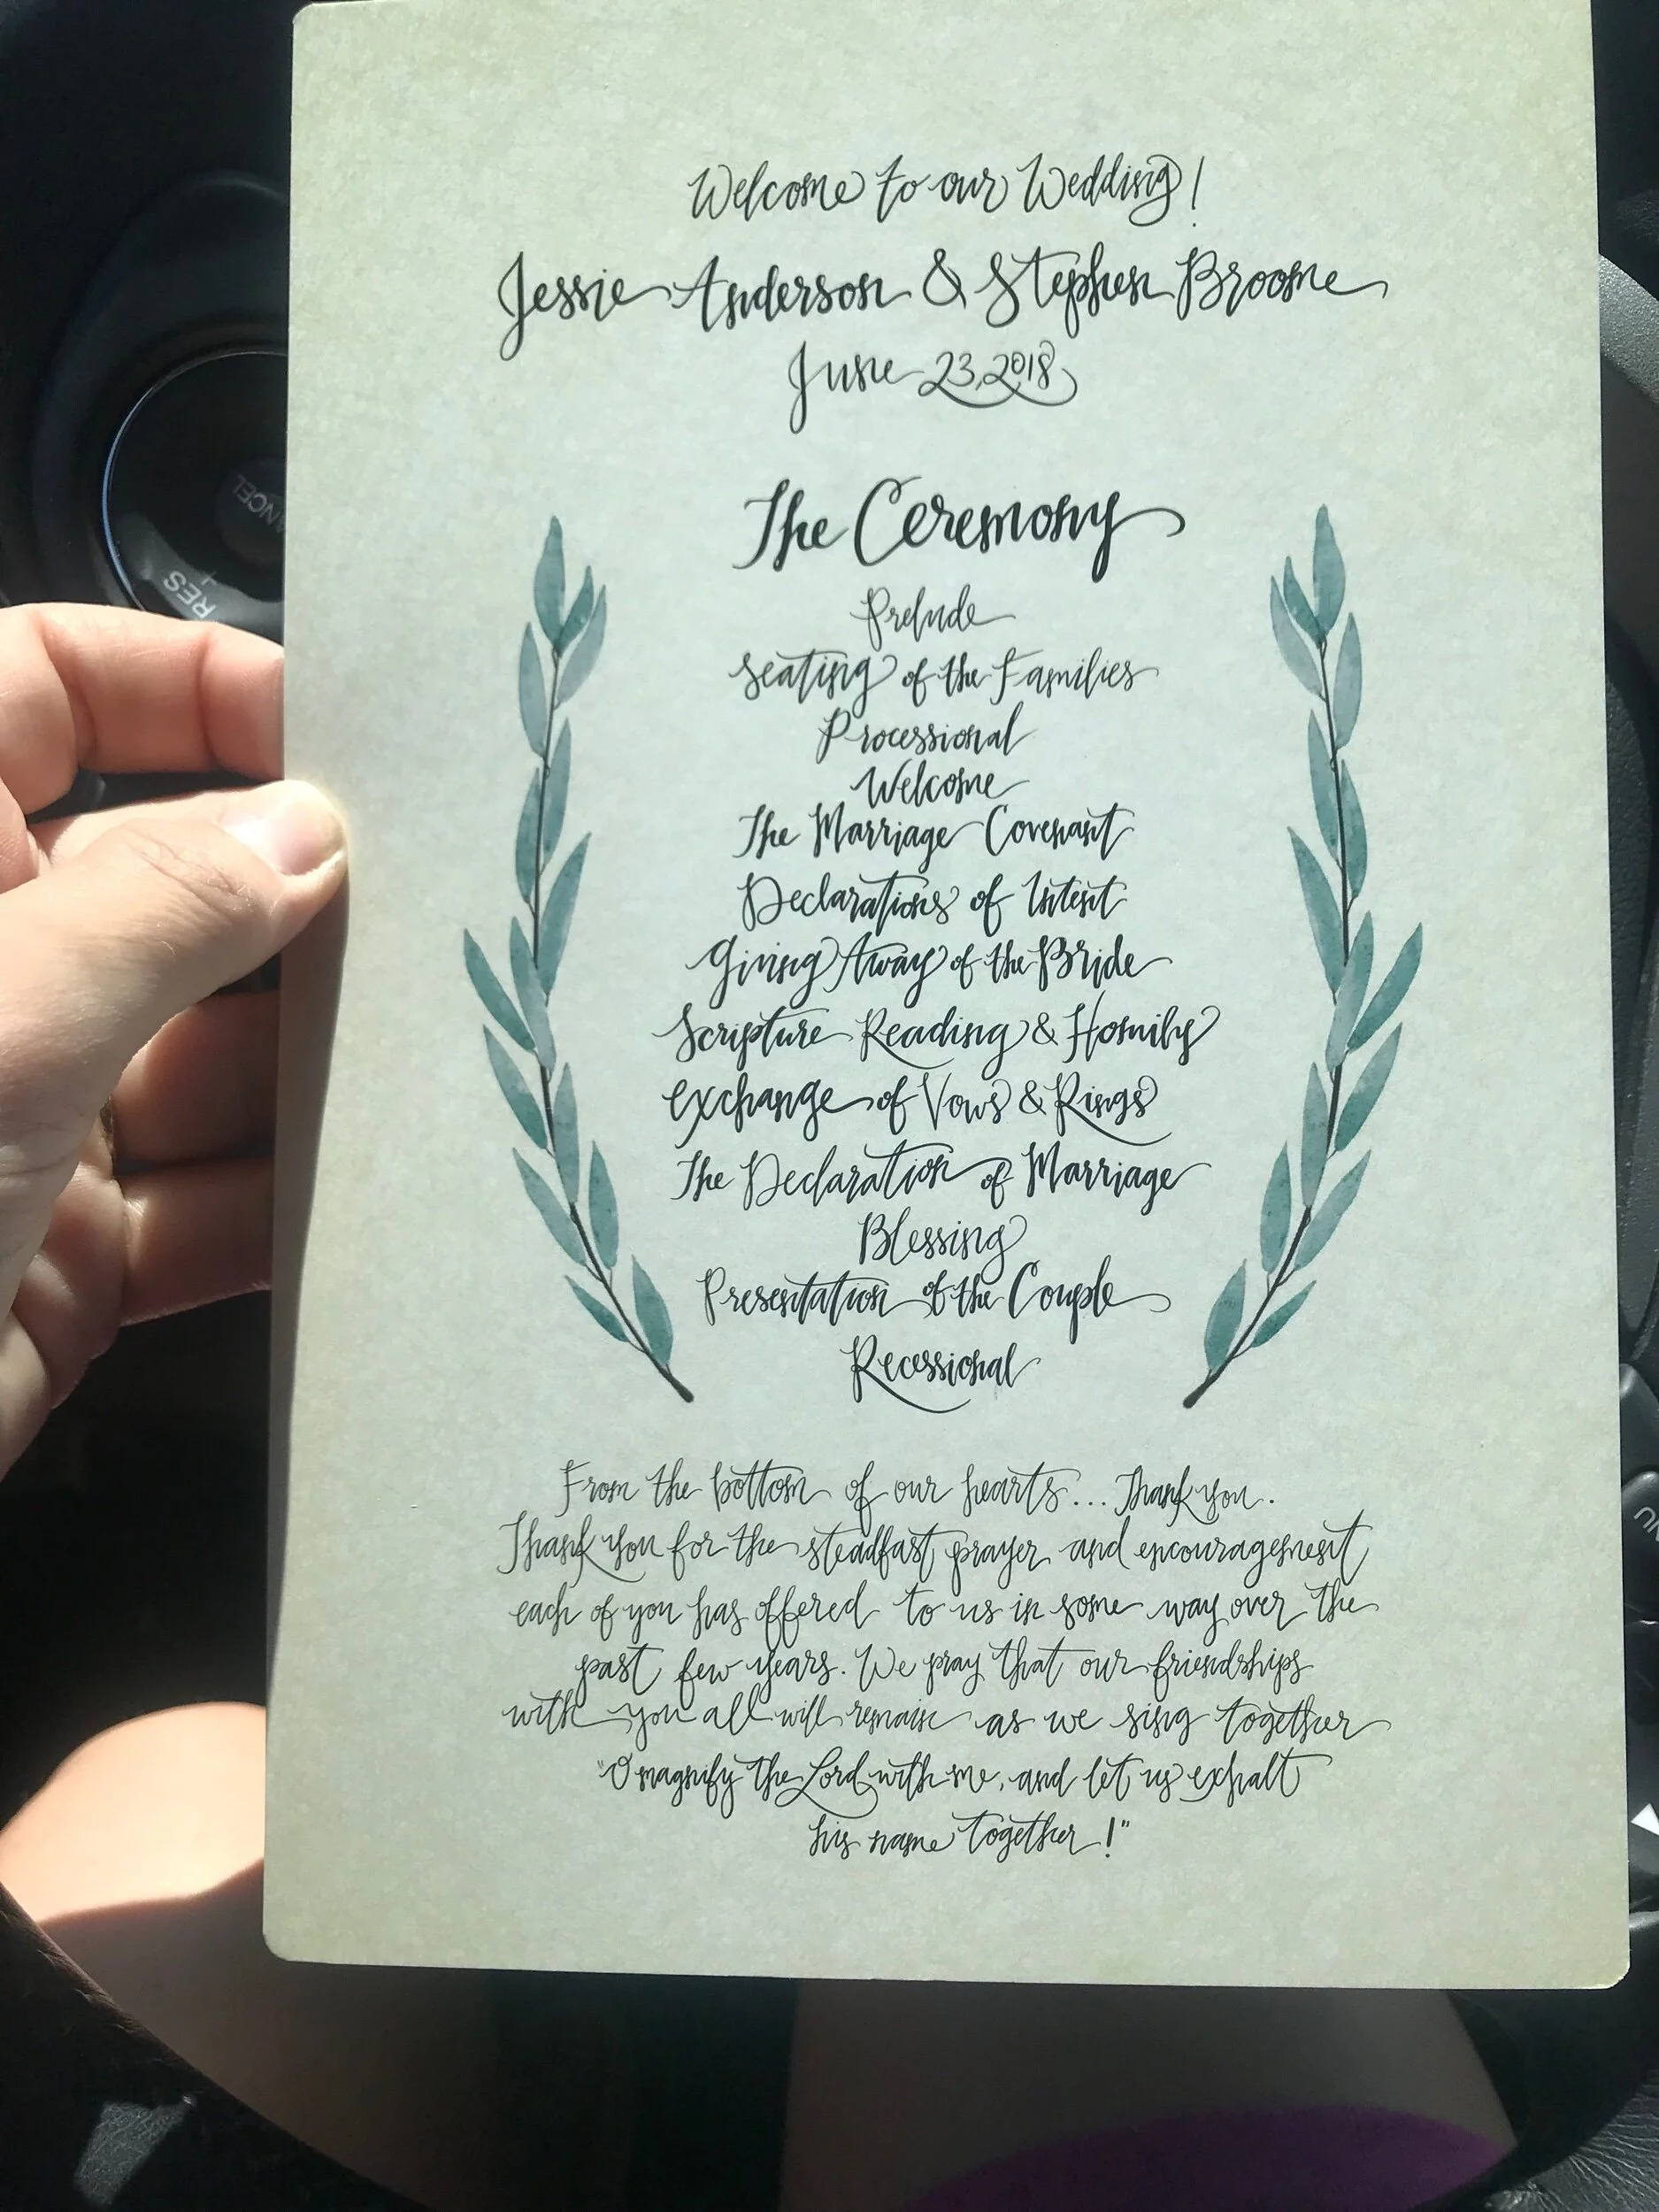 Welcome to our Wedding!
Jessie Anderson & Stephen Broome
June 23, 2018
The Ceremony
Prelude
Seating of the Families
Processional
Welcome
The Marriage Covenant
Declarations of Intent
Giving Away of the Bride
Scripture Reading & Homily
Exchange of Vows & Rings
The Declaration of Marriage
Blessing
Presentation of the Couple
Recessional
From the bottom of our hearts... Thank you.
Thank you for the steadfast prayer and encouragement
each of you has offered to us in some way over the
past few years. We pray that our friendships
with you all will remain as we sing together
"O magnify the Lord with me, and let us exhalt
his name together!"
RES